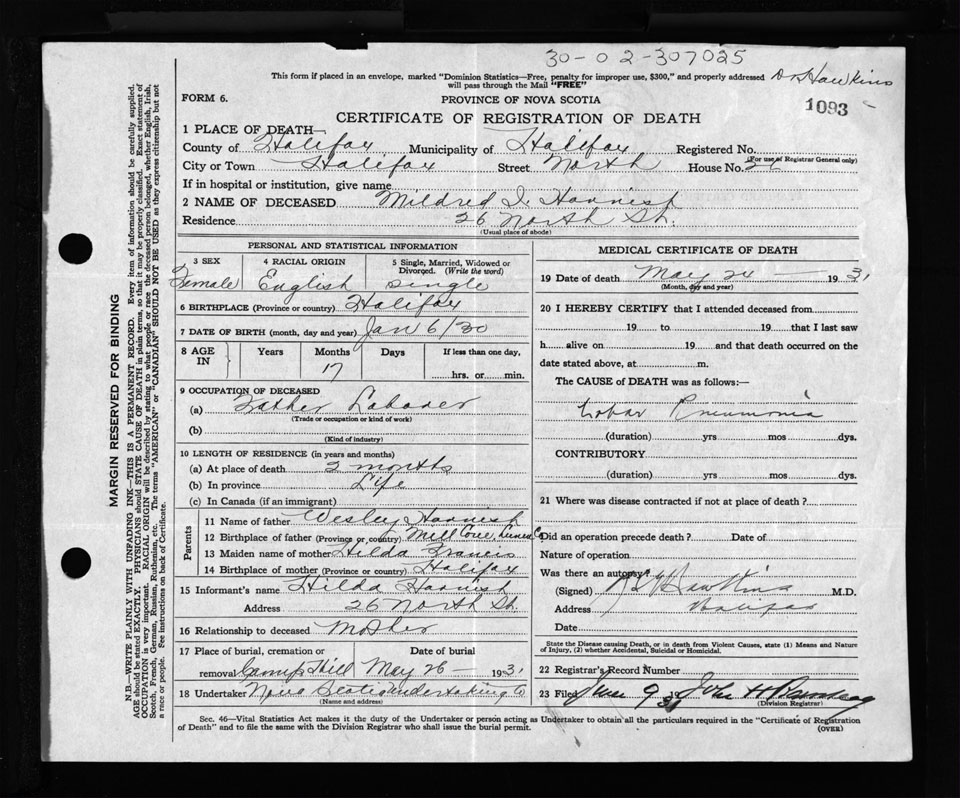 30-02-307025
This form if placed in an envelope, marked "Dominion Statistics—Free, penalty for improper use, $300," and properly addressed Dr Hawkins
will pass through the Mail "FREE"
FORM 6. PROVINCE OF NOVA SCOTIA 1093
CERTIFICATE OF REGISTRATION OF DEATH
1 PLACE OF DEATH—
County of Halifax Municipality of Halifax Registered No.
(For use of Registrar General only)
City or Town Halifax Street North House No.
If in hospital or institution, give name
2 NAME OF DECEASED Mildred I. Harnish
Residence 26 North St.
(Usual place of abode)
PERSONAL AND STATISTICAL INFORMATION
3 SEX 4 RACIAL ORIGIN 5 Single, Married, Widowed or
Divorced. (Write the word)
Female English Single
6 BIRTHPLACE (Province or country) Halifax
7 DATE OF BIRTH (month, day and year) Jan 6/30
8 AGE IN Years Months Days If less than one day,
17 hrs. or min.
9 OCCUPATION OF DECEASED
(a) Father Labourer
(Trade or occupation or kind of work)
(b)
(Kind of industry)
10 LENGTH OF RESIDENCE (in years and months)
(a) At place of death 2 months
(b) In province Life
(c) In Canada (if an immigrant)
Parents
11 Name of father Wesley Harnish
12 Birthplace of father (Province or country) Mill Cove, Lunen Co
13 Maiden name of mother Hilda Francis
14 Birthplace of mother (Province or country) Halifax
15 Informant's name Hilda Harnish
Address 26 North St.
16 Relationship to deceased Mother
17 Place of burial, cremation or Date of burial
removal Camp Hill May 26 — 1931
18 Undertaker Nova Scotia Undertaking Co
(Name and address)
MEDICAL CERTIFICATE OF DEATH
19 Date of death May 24 — 1931
(Month, day and year)
20 I HEREBY CERTIFY that I attended deceased from
19 to 19 that I last saw
h alive on 19 and that death occurred on the
date stated above, at m.
The CAUSE OF DEATH was as follows:—
Lobar Pneumonia
(duration) yrs mos dys.
CONTRIBUTORY
(duration) yrs mos dys.
21 Where was disease contracted if not at place of death?
Did an operation precede death? Date of
Nature of operation
Was there an autopsy?
(Signed) Hawkins M.D.
Address Halifax
Date
State the Disease causing Death, or in death from Violent Causes, state (1) Means and Nature
of Injury, (2) whether Accidental, Suicidal or Homicidal.
22 Registrar's Record Number
23 Filed June 9 31 John H
(Division Registrar)
Sec. 46—Vital Statistics Act makes it the duty of the Undertaker or person acting as Undertaker to obtain all the particulars required in the "Certificate of Registration
of Death" and to file the same with the Division Registrar who shall issue the burial permit. (OVER)
MARGIN RESERVED FOR BINDING
N.B.—WRITE PLAINLY WITH UNFADING INK—THIS IS A PERMANENT RECORD. Every item of information should be carefully supplied.
AGE should be stated EXACTLY. PHYSICIANS should STATE CAUSE OF DEATH in plain terms, so that it may be properly classified. Exact statement of
OCCUPATION is very important. RACIAL ORIGIN will be described by stating to what people or race the deceased person belonged, whether English, Irish,
Scotch, French, German, Russian, Ruthenian, etc. The terms "AMERICAN" or "CANADIAN" SHOULD NOT BE USED as they express citizenship but not
a race or people. See instructions on back of Certificate.